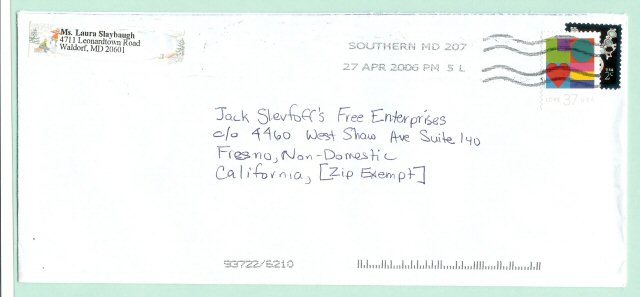 Ms. Laura Slaybaugh
4711 Leonardtown Road
Waldorf, MD 20601
SOUTHERN MD 207
27 APR 2006 PM 5 L
37 USA
2¢
Jack Slevfoff's Free Enterprises
c/o 4460 West Shaw Ave Suite 140
Fresno, Non-Domestic
California, [Zip Exempt]
93722/6210